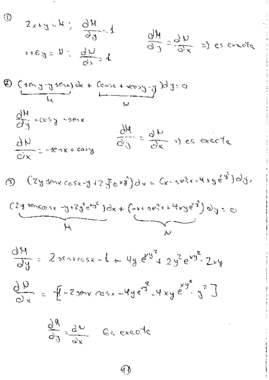 ① 2x+y=M ; ∂M/∂y = 1
x+6y=N ; ∂N/∂x = 1
∂M/∂y = ∂N/∂x => es exacta
② (seny-ysenx)dx + (cosx+xcosy-y)dy=0
M N
∂M/∂y = cosy-senx
∂N/∂x = -senx+cosy
∂M/∂y = ∂N/∂x => es exacta
③ (2y senx cosx-y+2y²e^{xy²})dx = (x-sen²x-4xye^{xy²})dy,
(2y senx cosx-y+2y²e^{xy²})dx + (-x+sen²x+4xye^{xy²})dy=0
M N
∂M/∂y = 2senxcosx-1+4ye^{xy²}+2y²e^{xy²}·2xy
∂N/∂x = -[1-2senx cosx-4ye^{xy²}-4xye^{xy²}·y²]
∂M/∂y = ∂N/∂x Es exacta